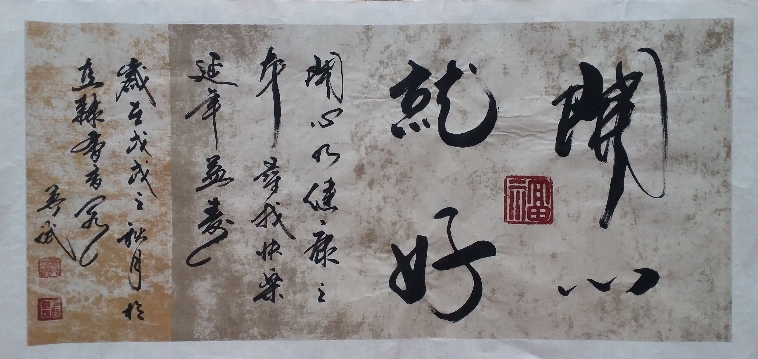 開心
就好
開心乃健康之
本尋找快樂
延年益壽
歲在戊戌之秋月於
直隸
福